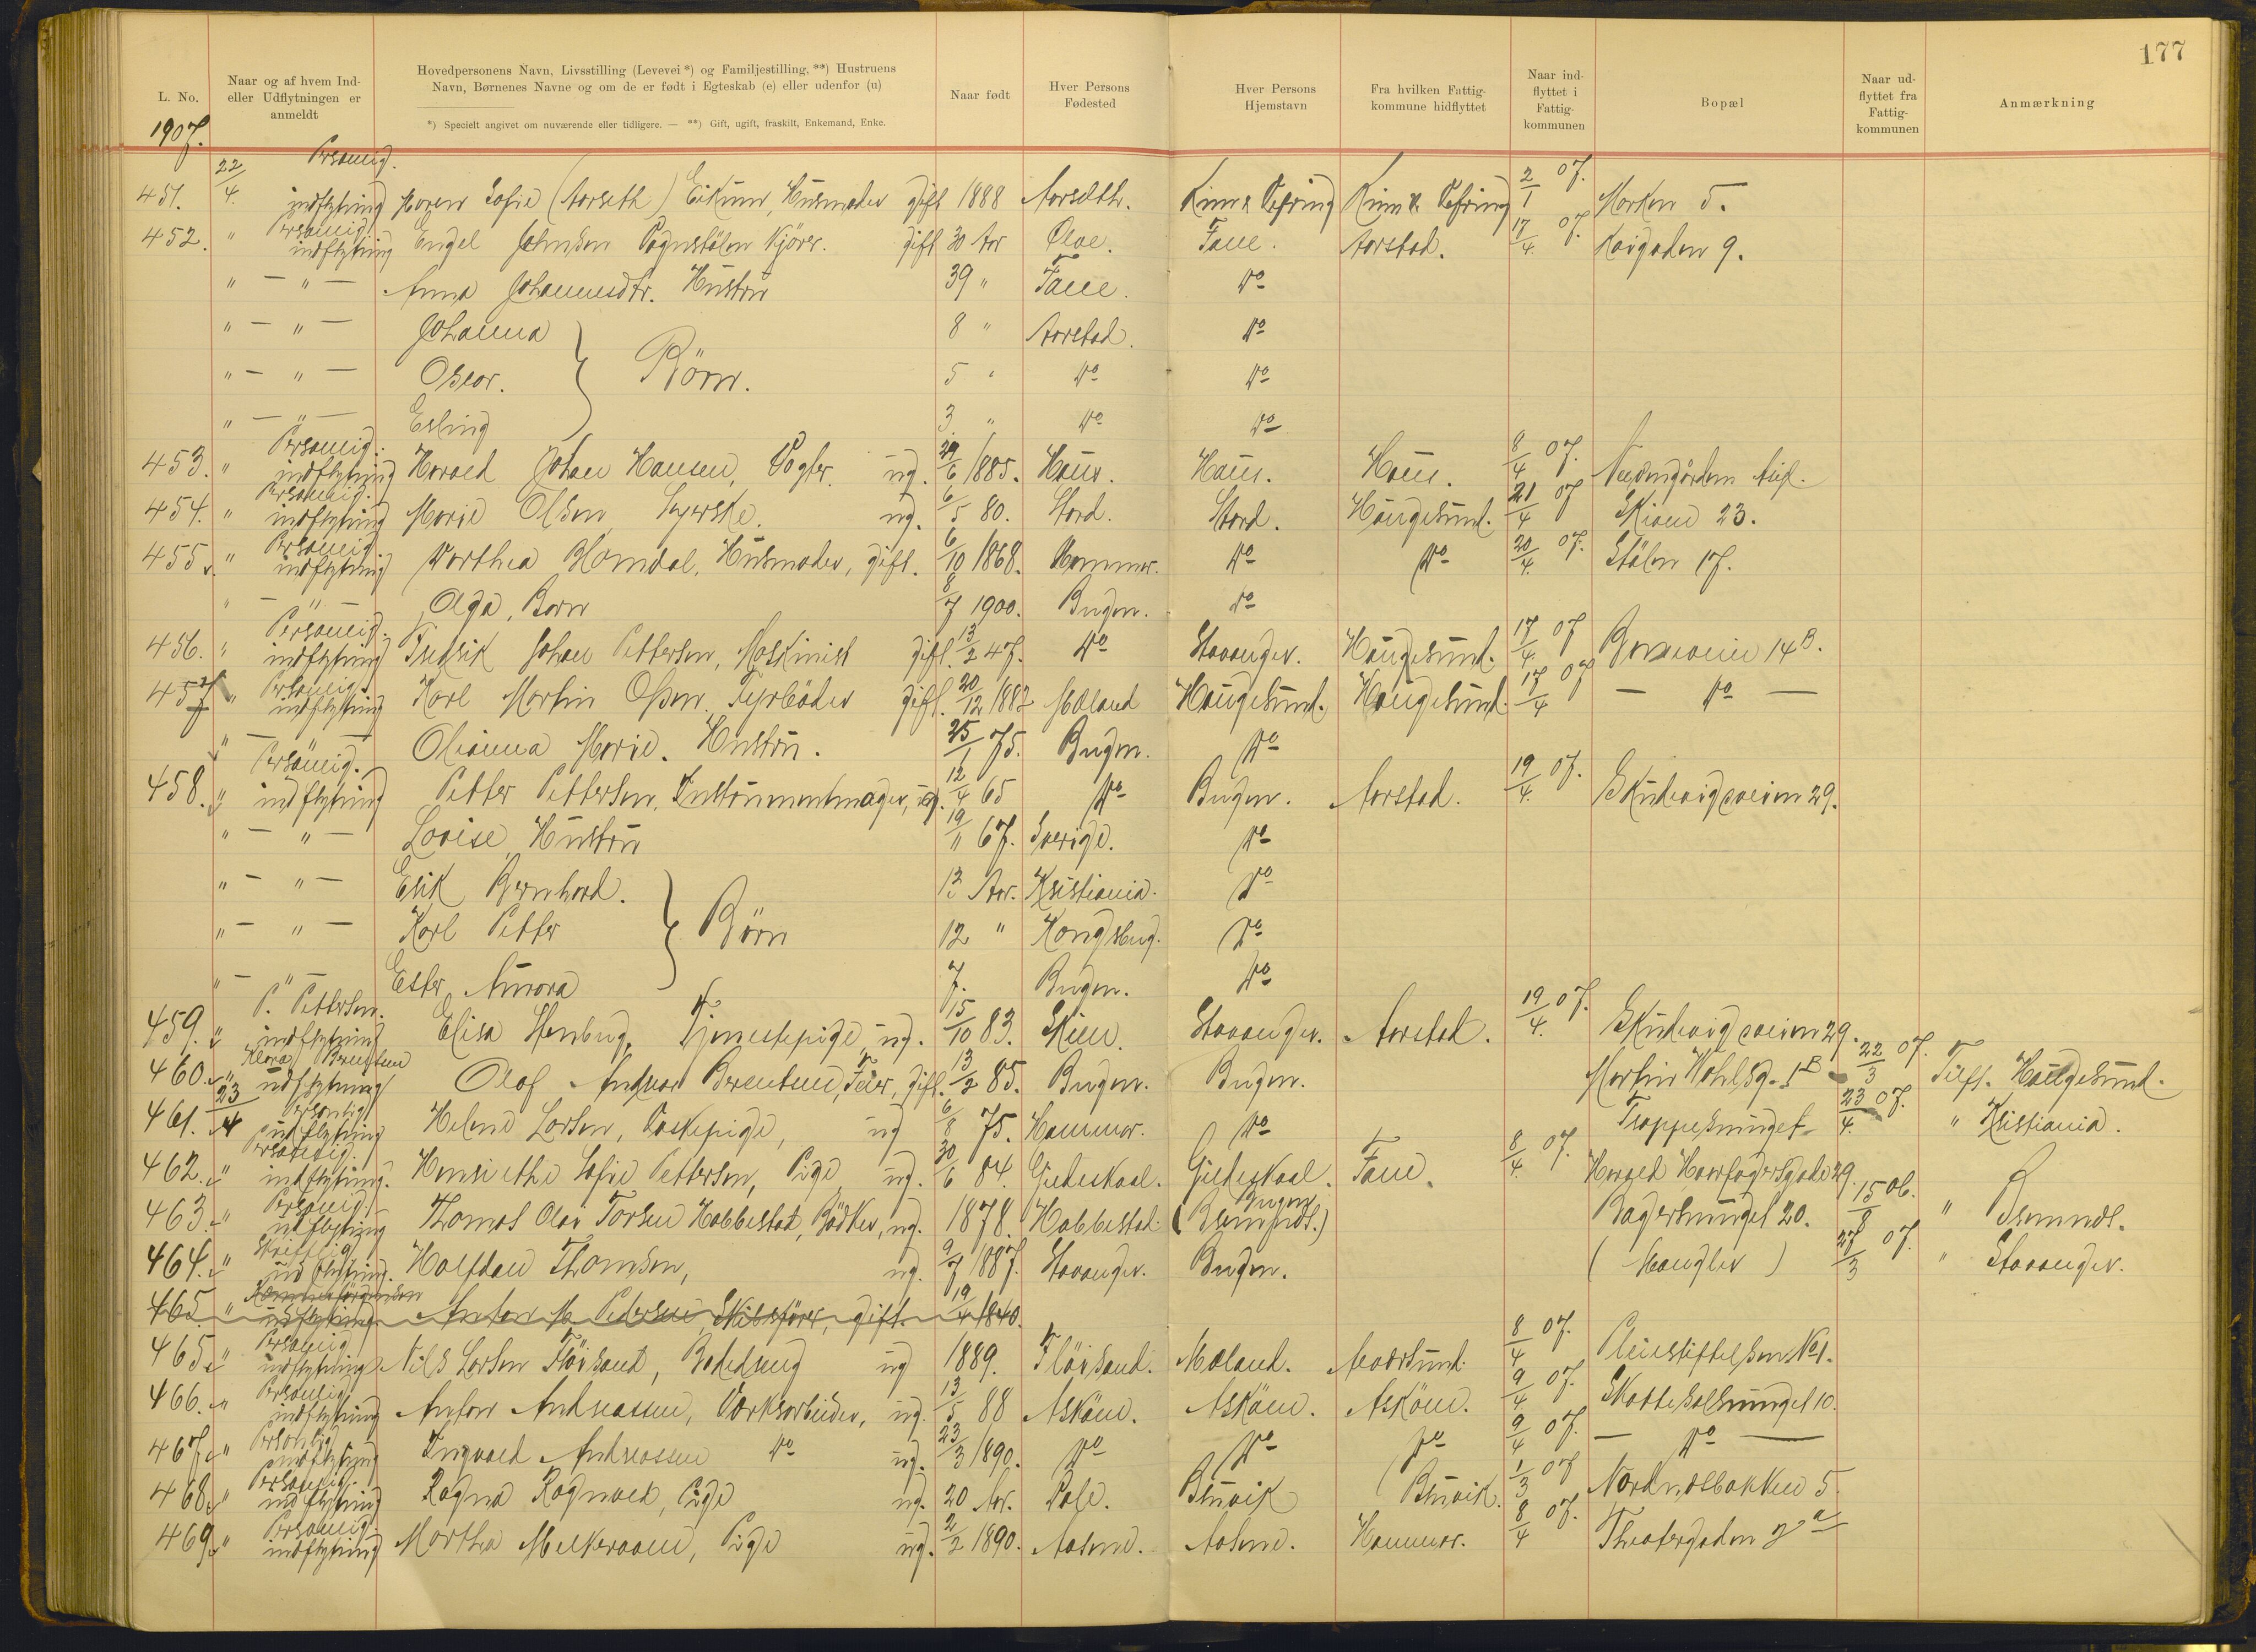 177
L. No.
Naar og af hvem Ind- eller Udflytningen er anmeldt
Hovedpersonens Navn, Livsstilling (Levevei *) og Familjestilling, **) Hustruens Navn, Børnenes Navne og om de er født i Egteskab (e) eller udenfor (u)
*) Specielt angivet om nuværende eller tidligere. — **) Gift, ugift, fraskilt, Enkemand, Enke.
Naar født
Hver Persons Fødested
Hver Persons Hjemstavn
Fra hvilken Fattig-kommune hidflyttet
Naar ind-flyttet i Fattig-kommunen
Bopæl
Naar ud-flyttet fra Fattig-kommunen
Anmærkning
1907.
451. 22/4. Personlig. indflytning Maren Sofie (Aarseth) Eikum, Husmoder gift 1888 Aarseth. Kinn 2/1 07. Marken 5.
452. " Personlig indflytning Engel Johnsen Kjører. gift 30 Aar Fane. Aarstad. 17/4. 07. Kaigaden 9.
" — " — Anna Johannesdtr. Hustru 39 " Fane. Do
" — " — Johanna 8 " Aarstad. Do
" — " — Oscar. } Børn. 5 " Do Do
" — " — Erling 3 " Do Do
453. " Personlig. indflytning Harald Johan Hansen, ug. 29/6 1885. Haus. Haus. Haus. 8/4 07.
454. " Personlig. indflytning Marie Olsen, Syerske. ug. 6/5 80. Stord. Stord. Haugesund. 21/4 07 Skiven 23.
455. " Personlig. indflytning Dorthea Homdal, Husmoder, gift. 6/10 1868. Hammer. Do Do 20/4. 07. Stølen 17.
" — " — Olga, Barn 8/7 1900. Bergen. Do
456. " Personlig. indflytning Fredrik Johan Pettersen, Maskinist gift. 13/2 47. Do Stavanger. Haugesund. 17/4. 07 14 B.
457 " Personlig. indflytning Karl Martin Olsen. Fyrbøder gift. 20/12 1882 Haugesund. Haugesund. 17/4 07 — Do —
" — Olianna Marie. Hustru. 25/1 75. Bergen. Do
458. " Personlig. indflytning Petter Pettersen, Instrumentmager, ug. 12/4 65 Do Bergen. Aarstad. 19/4. 07. Skudevigsveien 29.
" — " — Lovise Hustru 19/11 67. Sverige. Do
" — " — Erik Bernhard. 13 Aar. Kristiania. Do
" — " — Karl Petter } Børn 12 " Kongsberg. Do
" — " — Ester Aurora 7. Bergen. Do
459. " P. Pettersen. indflytning Elisa Stenberg, Tjenestepige, ug. 15/10 83. Skien. Stavanger. Aarstad. 19/4. 07. Skudevigsveien 29.
460. " Klara Berentsen udflytning Olaf Andreas Berentsen, Feier, gift. 13/2 85. Bergen. Bergen. Martin Wahlsg. 1 B 22/3 07. Tilfl. Haugesund.
461. 23/4 Personlig udflytning Helene Larsen, Vaskepige, ug 6/8 75. Hammer. Do Trappesmuget 23/4. 07. " Kristiania.
462. " Personlig. indflytning. Henriethe Sofie Pettersen, Pige ug. 30/6 84. Gildeskaal. Gildeskaal. Fane. 8/4. 07. Harald Haarfagersgade 29.
463. " Personlig. udflytning Thomas Olai Torsen Habbestad, Bødker, ug. 1878. Habbestad. Bergen (Bremnes.) Bagersmuget 20. 15/8 06. " Bremnes.
464. " Skriftlig udflytning. Halfdan Thomsen, ug. 9/7 1887. Stavanger. Bergen. (Mangler) 27/3 07. " Stavanger.
465. " udflytning Anton M. Pedersen, Skibsfører, gift 19/4 1840.
465. " Personlig indflytning Nils Larsen Fløisand, ug 1889. Fløisand. Mæland. Alversund. 8/4 07. Pleiestiftelsen No 1.
466. " Personlig. indflytning Anton Andreassen, Værksarbeider, ug. 13/5 88 Askøen. Askøen. Askøen. 9/4 07. Skottesalsmuget 10.
467. " Personlig indflytning Ingvald Andreassen Do ug. 23/3 1890. Do Do Do 9/4 07. — Do —
468. " Personlig. indflytning Ragna Ragnald, Pige ug. 20 Aar. Bruvik Bruvik. 1/3 07 Nordnesbakken 5.
469. " Personlig. indflytning Martha Melkeraaen, Pige ug. 2/2 1890. Aasene. Aasene. Hammer. 8/4 07. Theatergaden 7 a